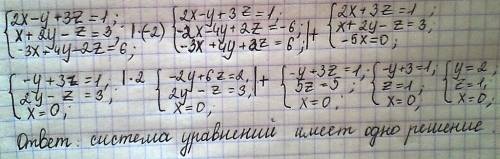 {2x-y+3z=1; x+2y-z=3; -3x+4y-2z=6; |·(-2) {2x-y+3z=1; -2x-4y+2z=-6; -3x+4y+2z=6; |+ {2x+3z=1; x+2y-z=3; -5x=0;
{-y+3z=1; 2y-z=3; x=0; |·2 {-2y+6z=2, 2y-z=3, x=0; |+ {-y+3z=1; 5z=5; x=0; {-y+3=1; z=1; x=0; {y=2; z=1, x=0;
Ответ: система уравнений имеет одно решение